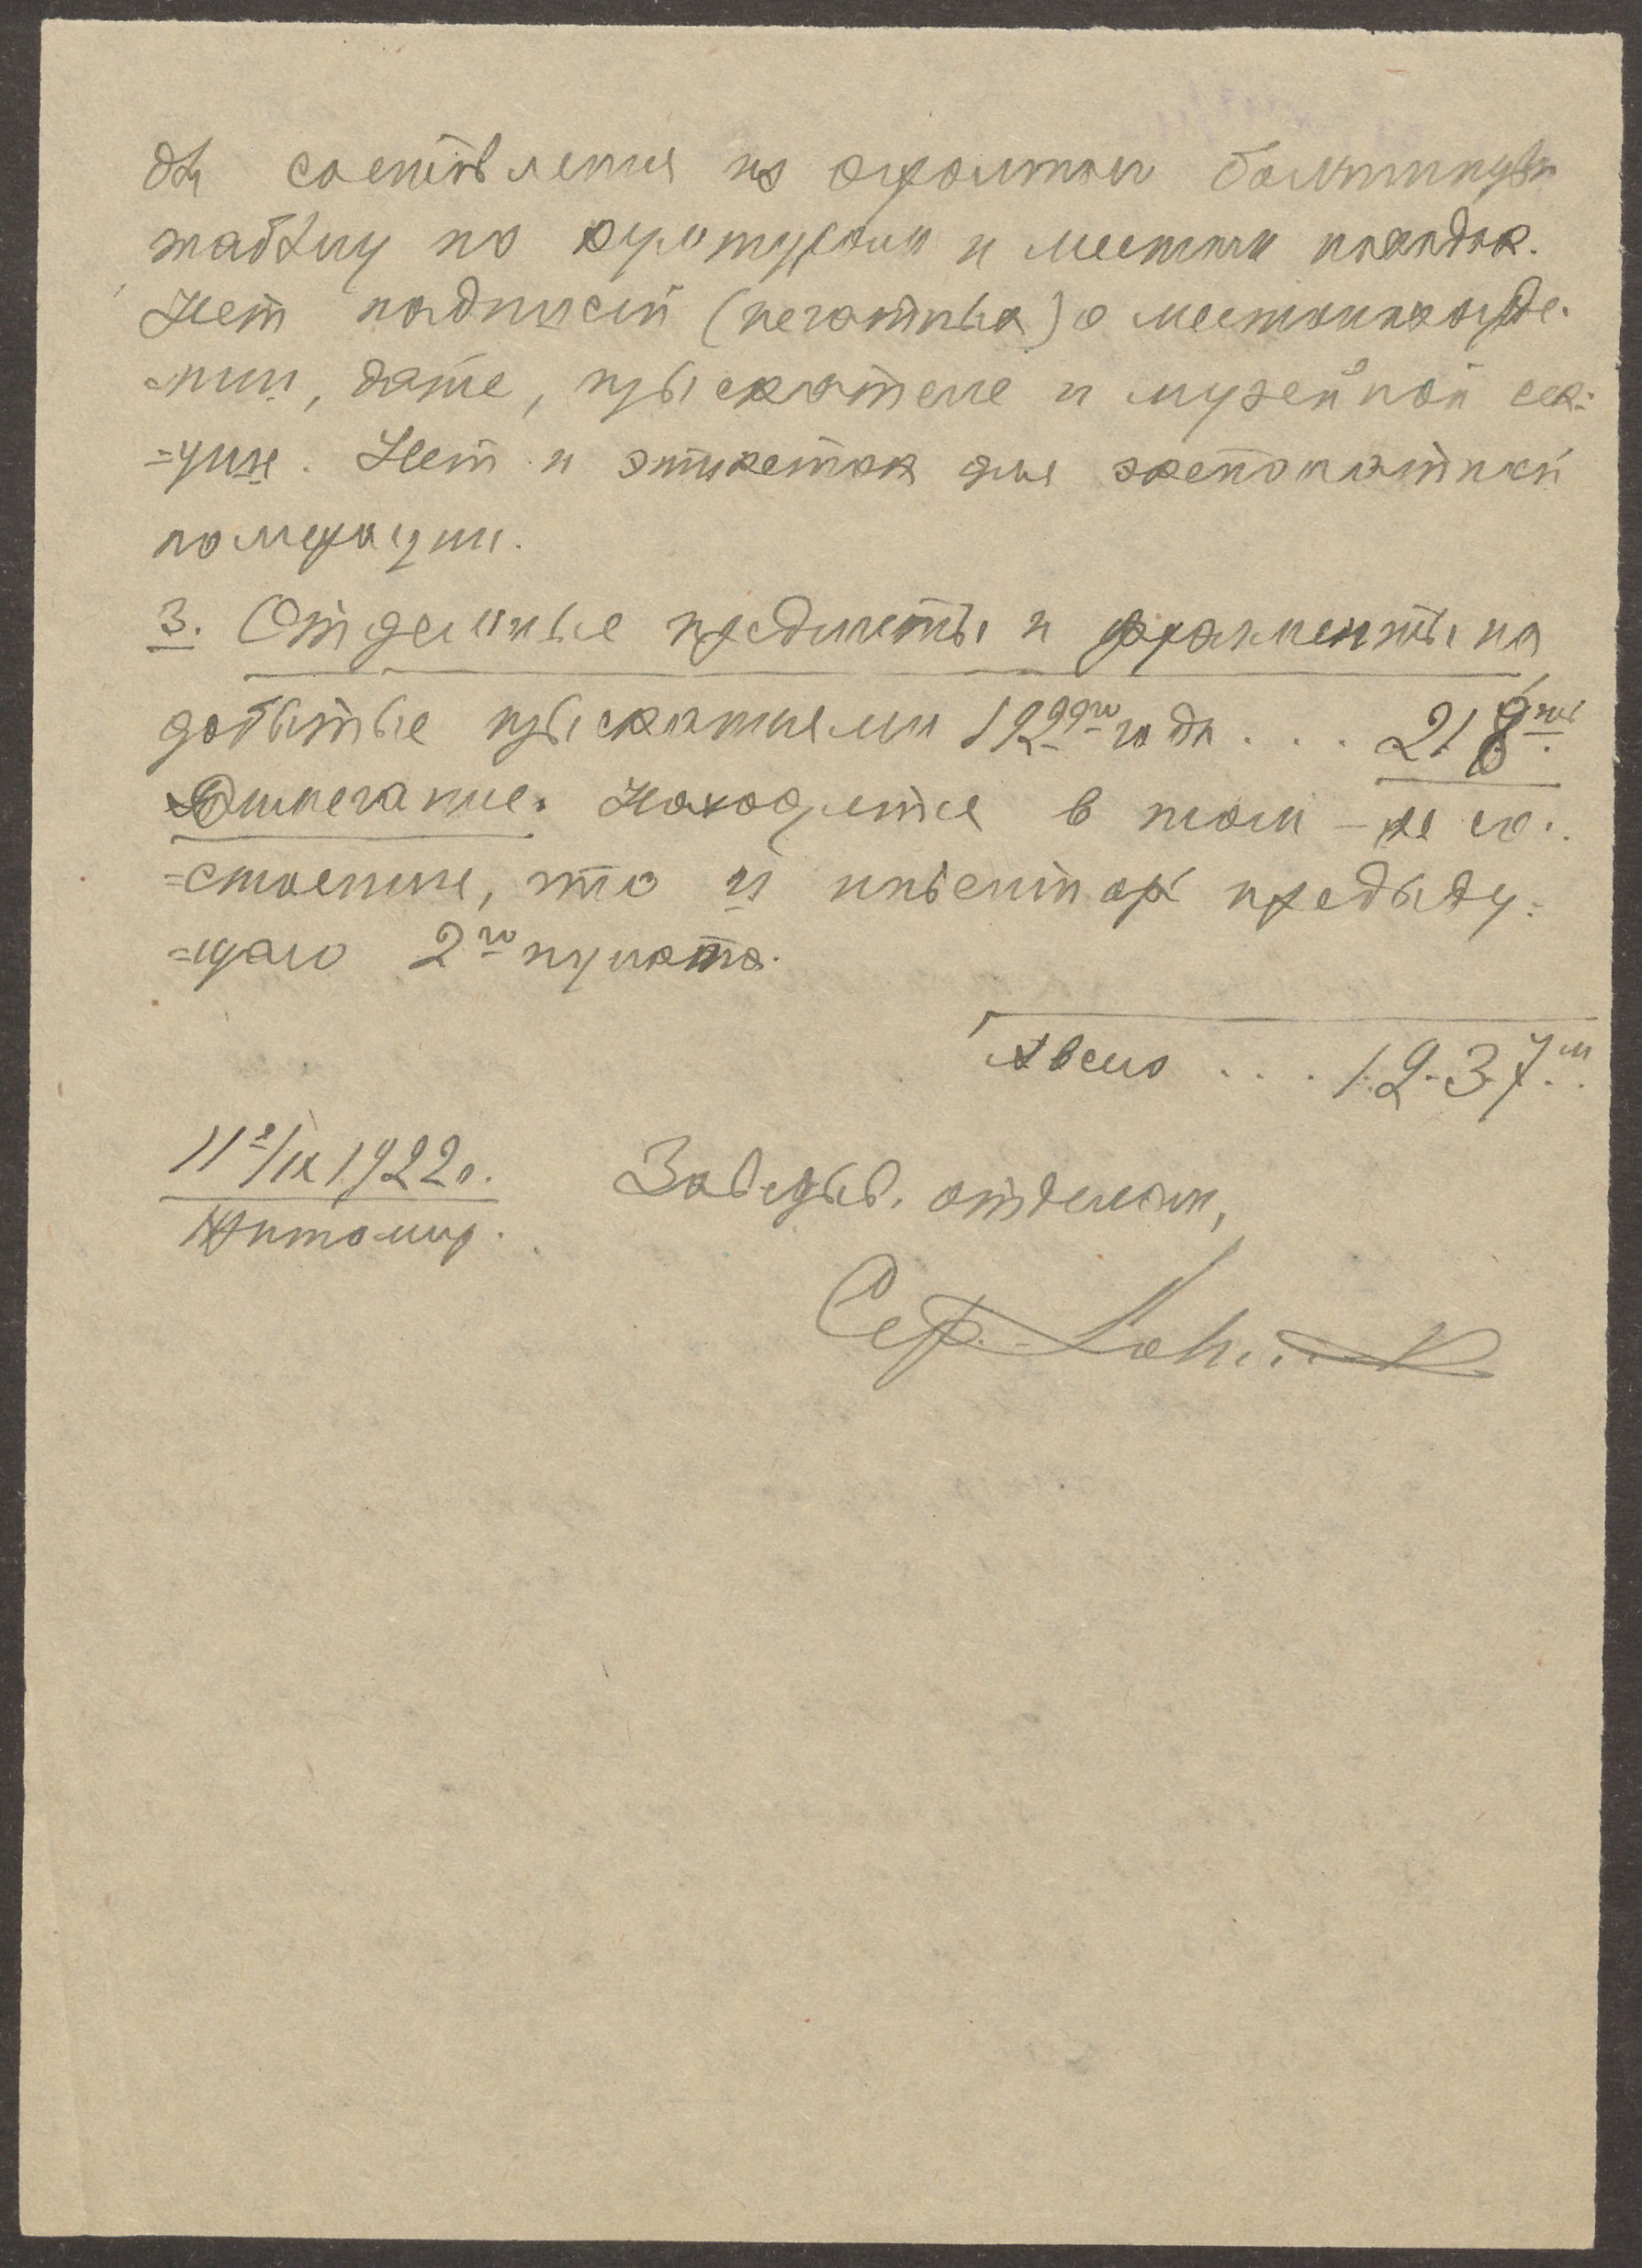 для составления из
таблиц по культурам и местам находок.
Нет надписей (печатных) о местонахожде-
-нии, дате, изыскателе и музейной сек=
=ции. Нет и этикеток для экспонатной
номерации.
3. Отдельные предметы и фрагменты на
добытые изысканиями 1922го года . . . 218
Примечание. Находятся в том-же со=
=стоянии, что и инвентарь предыду=
=щаго 2го пункта.
Всего . . . 1237
11е/IX 1922 г.
Житомир.
Заведыв. отделом,
Сер.